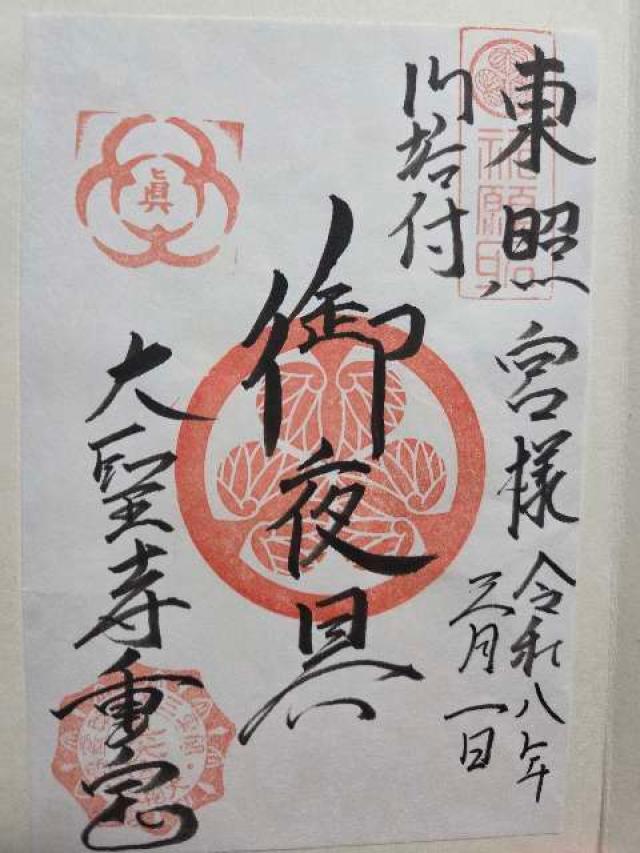 東照宮様
御拾付
令和八年
三月一日
御夜具
大聖寺重宝
眞
祈願